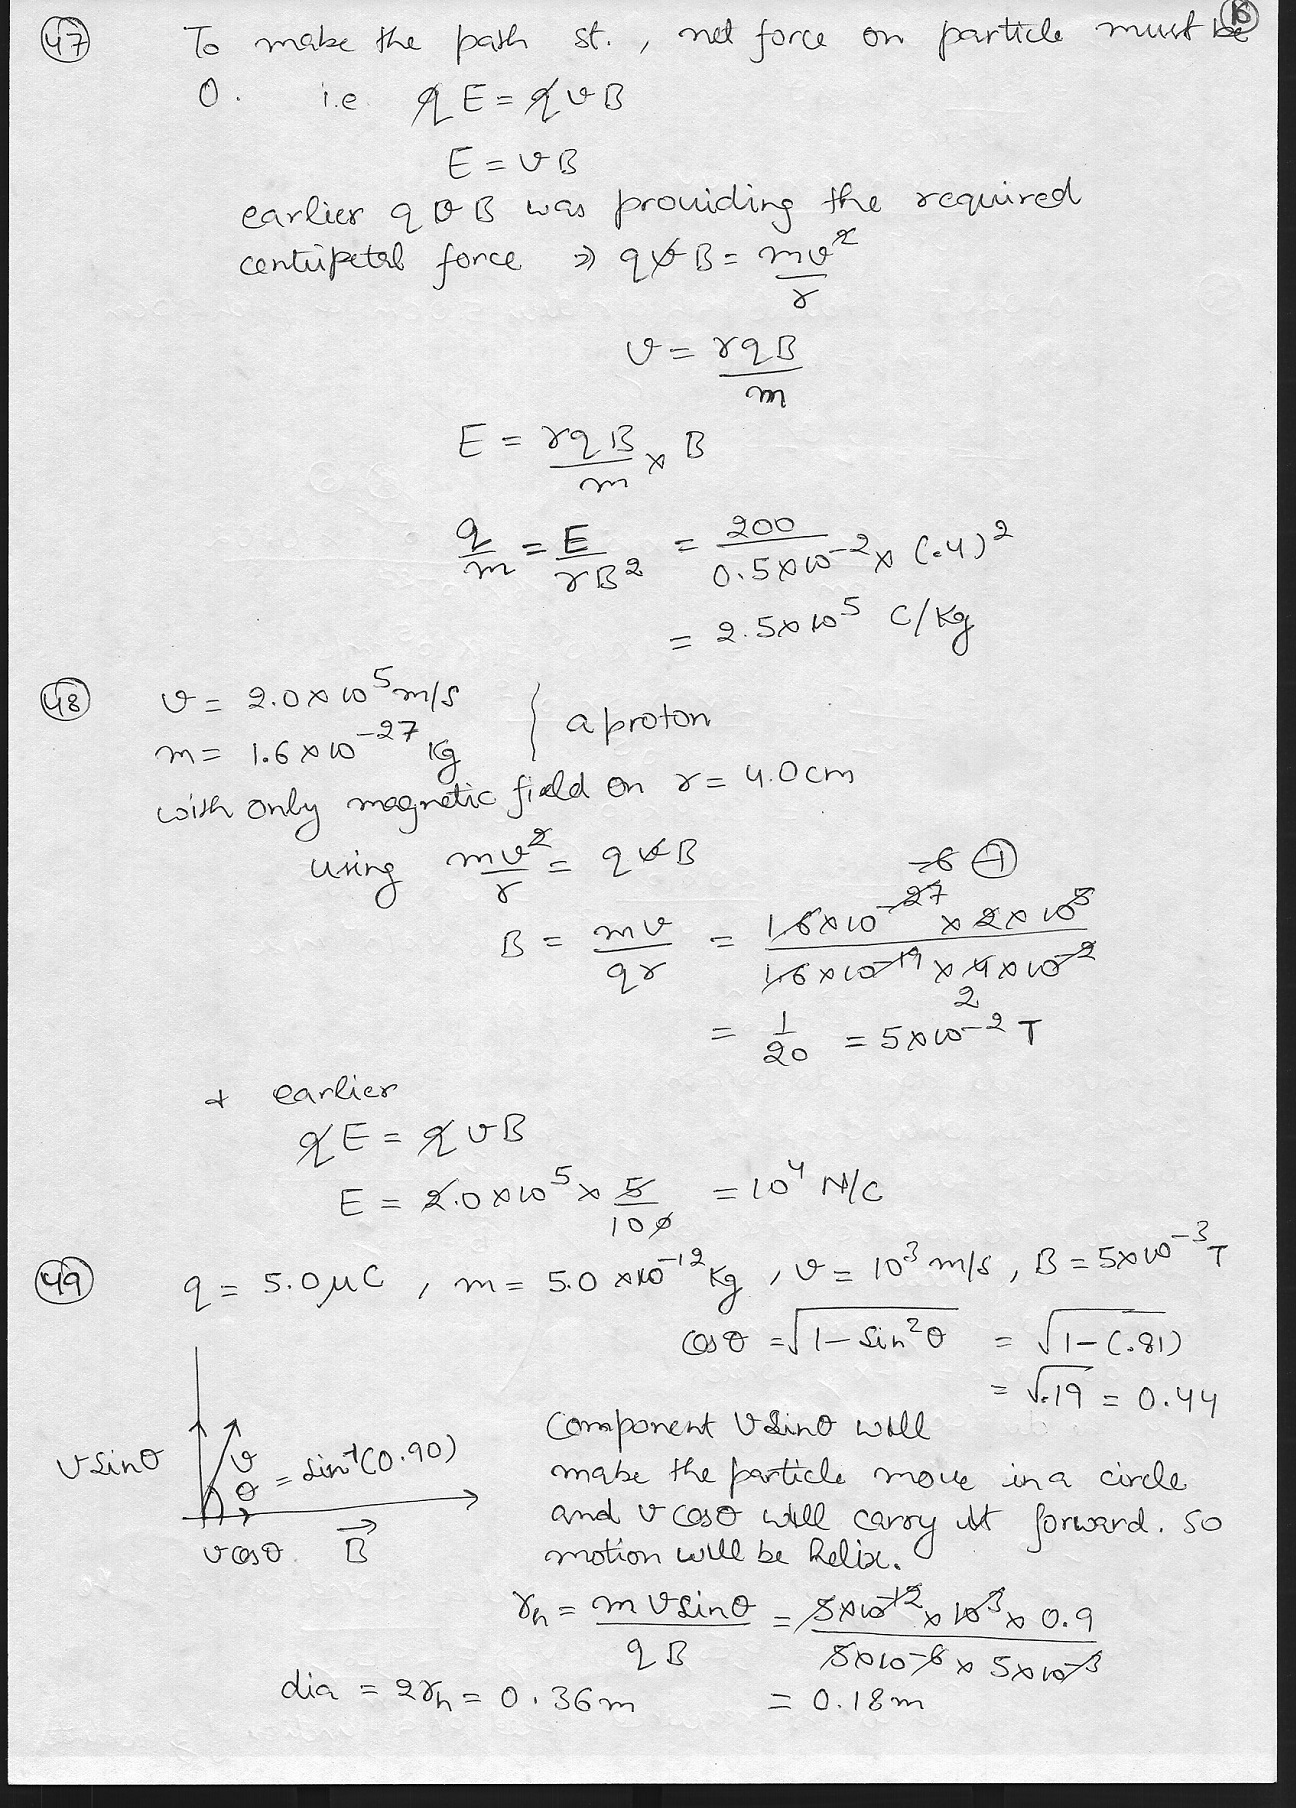 16
47 To make the path st., net force on particle must be
0. i.e qE = qvB
E = vB
earlier qvB was providing the required
centripetal force ⇒ qvB = mv²/r
v = rqB/m
E = rqB/m × B
q/m = E/rB² = 200/0.5×10⁻² × (.4)²
= 2.5×10⁵ C/Kg
48 v = 2.0×10⁵ m/s
m = 1.6×10⁻²⁷ kg } a proton
with only magnetic field on r = 4.0cm
using mv²/r = qvB
-8 -1
B = mv/qr = 1.6×10⁻²⁷ × 2×10⁵/1.6×10⁻¹⁹ × 4×10⁻²
2
= 1/20 = 5×10⁻² T
& earlier
qE = qvB
E = 2.0×10⁵ × 5/100 = 10⁴ N/C
49 q = 5.0μC, m = 5.0×10⁻¹² Kg, v = 10³ m/s, B = 5×10⁻³ T
cosθ = √1 - sin²θ = √1-(.81)
= √.19 = 0.44
vsinθ
v
θ = sin⁻¹(0.90)
vcosθ B⃗
Component vsinθ will
make the particle move in a circle
and vcosθ will carry it forward. so
motion will be helix.
rₕ = mvsinθ/qB = 5×10⁻¹² × 10³ × 0.9/5×10⁻⁶ × 5×10⁻³
dia = 2rₕ = 0.36m = 0.18m